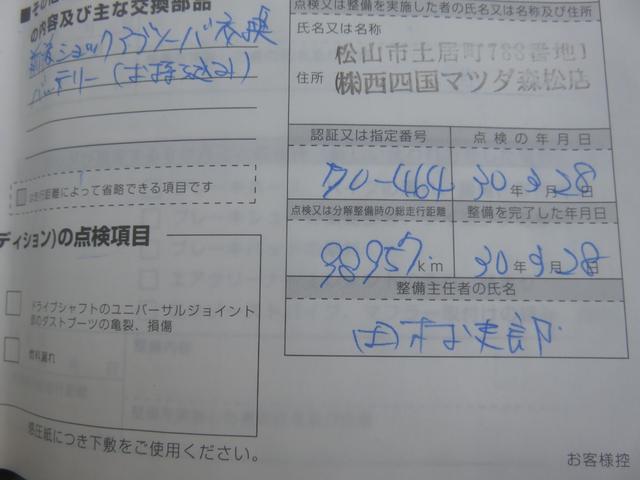 ■その他
の内容及び主な交換部品
前後ショックアブソーバ交換
バッテリー(お持ち込み)
は走行距離によって省略できる項目です
ディション)の点検項目
ドライブシャフトのユニバーサルジョイント
部のダストブーツの亀裂、損傷
燃料漏れ
感圧紙につき下敷をご使用ください。
点検又は整備を実施した者の氏名又は名称及び住所
氏名又は名称
松山市土居町788番地1
住所
(株)西四国マツダ森松店
認証又は指定番号
点検の年月日
70-464
30年9月28日
点検又は分解整備時の総走行距離
整備を完了した年月日
98957km
30年9月28日
整備主任者の氏名
お客様控